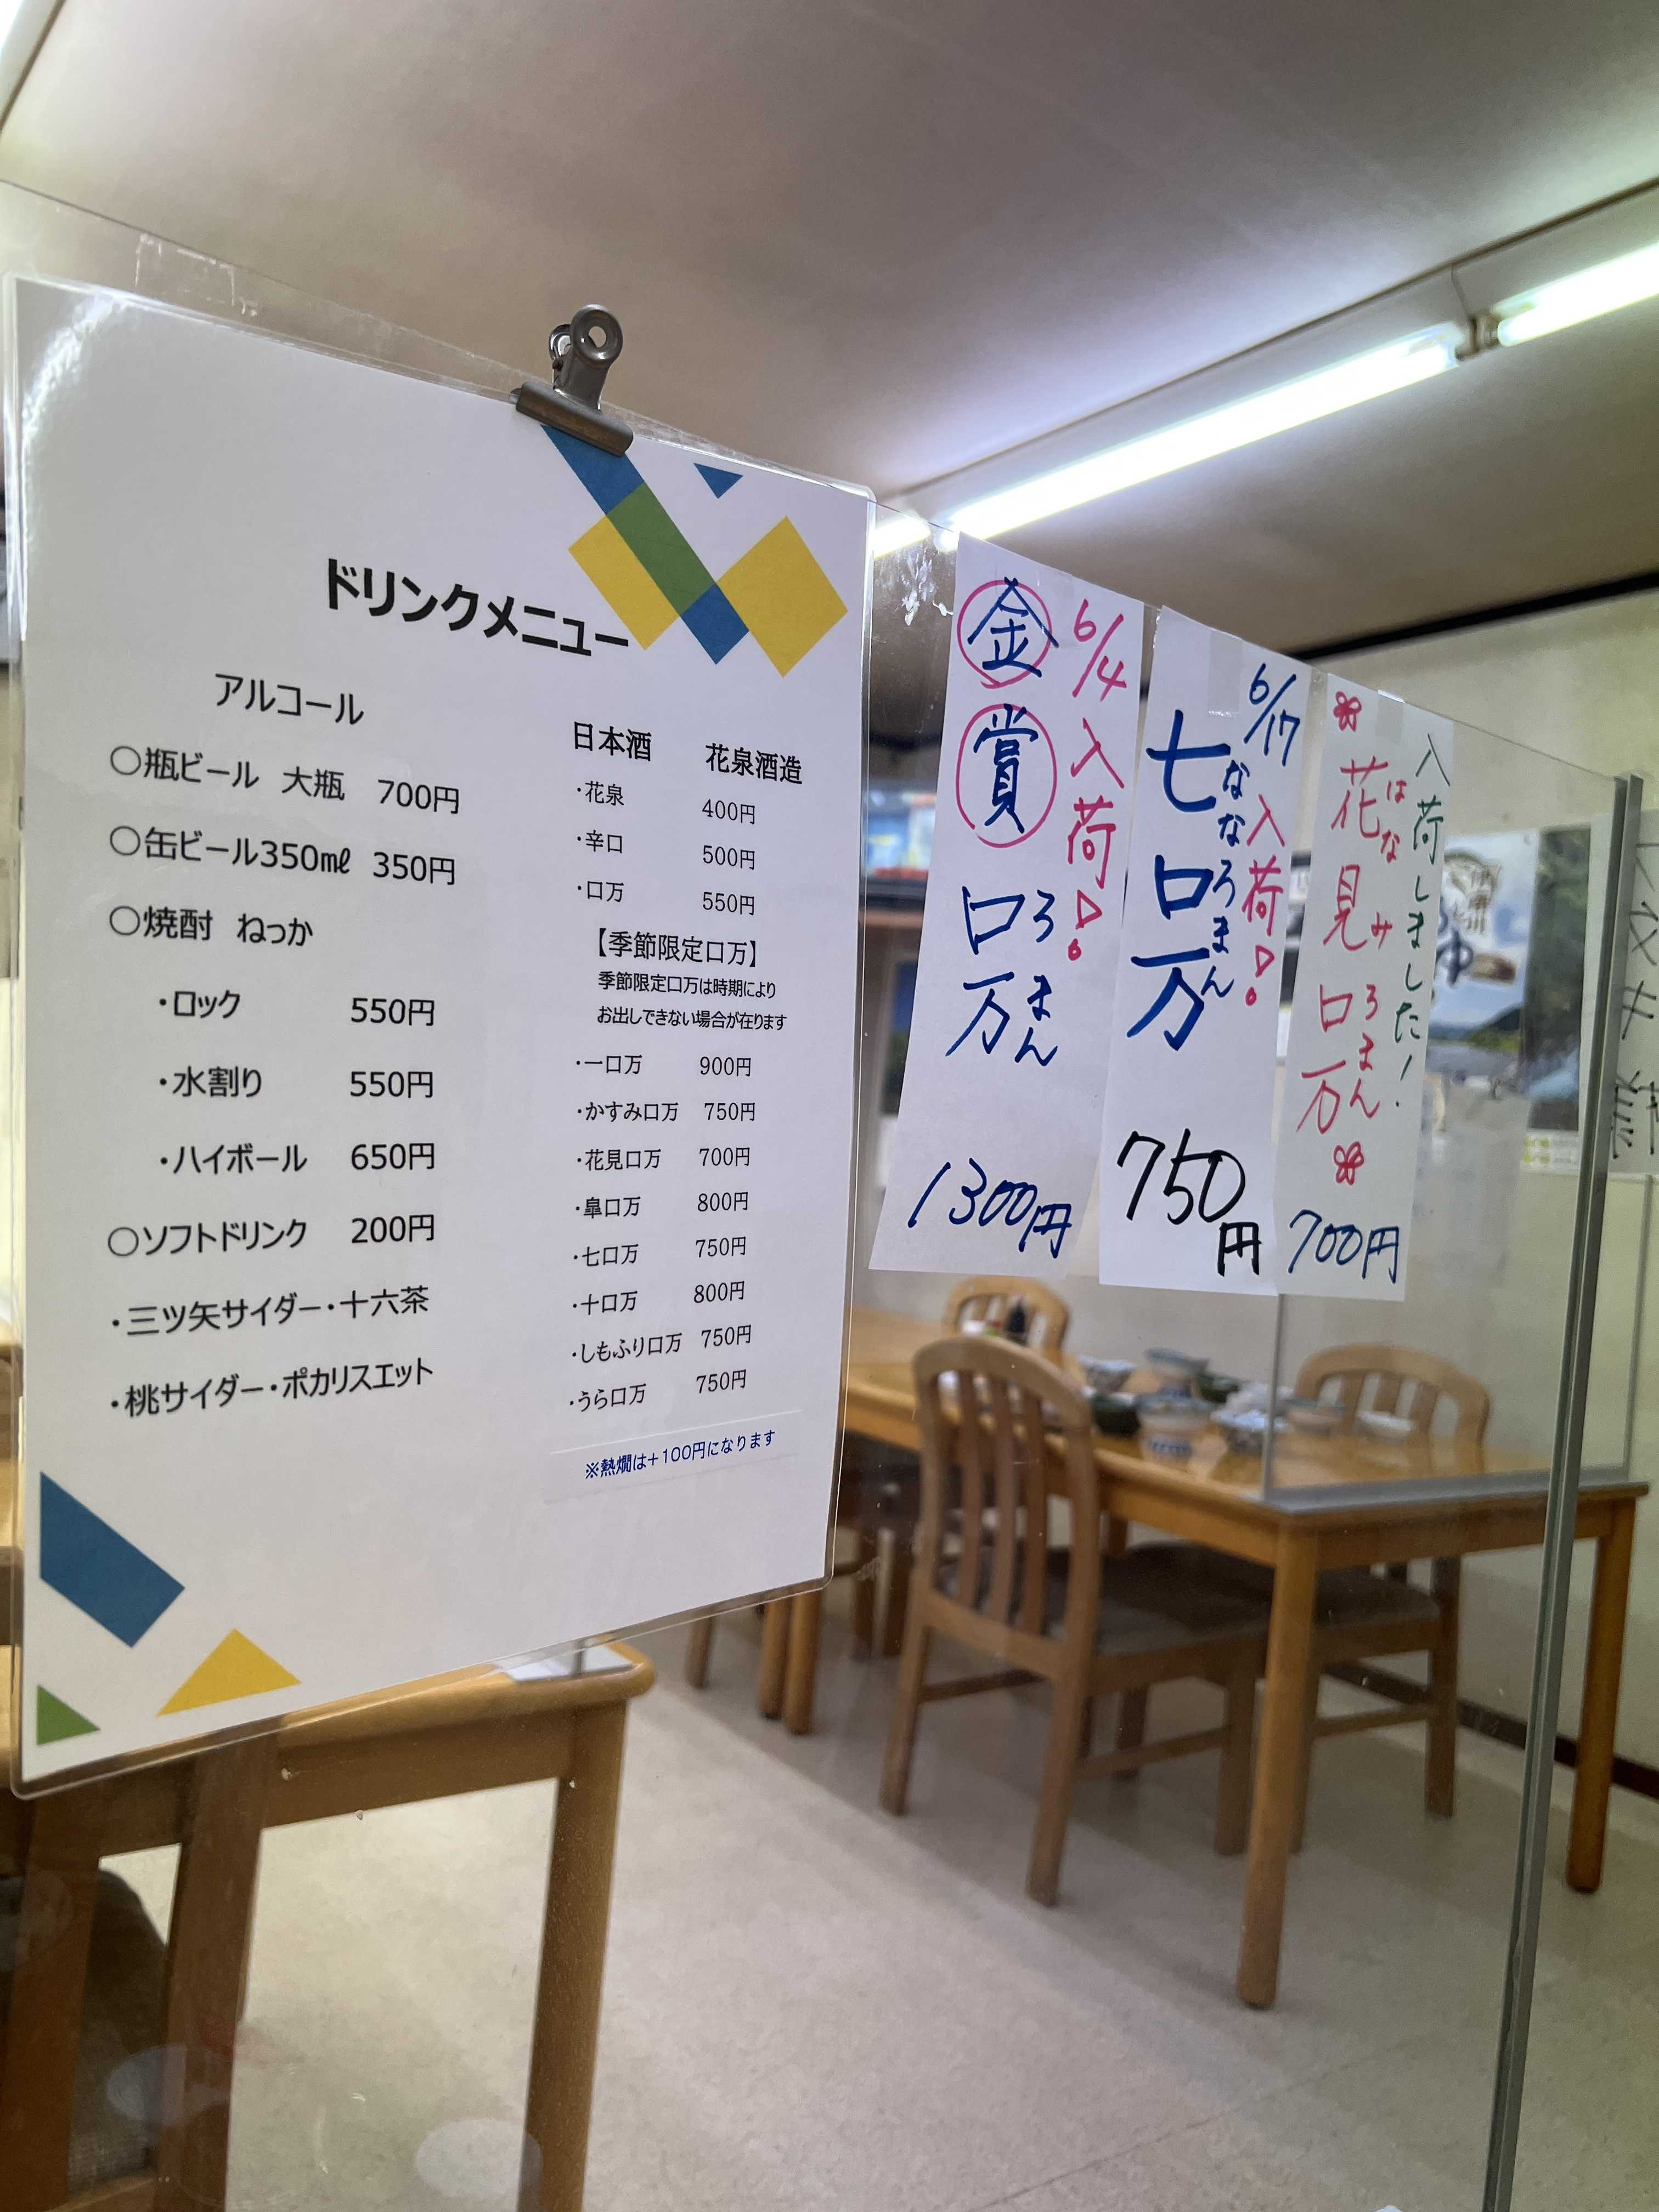 ドリンクメニュー
アルコール
○瓶ビール 大瓶 700円
○缶ビール350㎖ 350円
○焼酎 ねっか
・ロック 550円
・水割り 550円
・ハイボール 650円
○ソフトドリンク 200円
・三ツ矢サイダー・十六茶
・桃サイダー・ポカリスエット
日本酒 花泉酒造
・花泉 400円
・辛口 500円
・口万 550円
【季節限定口万】
季節限定口万は時期により
お出しできない場合が在ります
・一口万 900円
・かすみ口万 750円
・花見口万 700円
・皐口万 800円
・七口万 750円
・十口万 800円
・しもふり口万 750円
・うら口万 750円
※熱燗は+100円になります
6/4 入荷!
金賞
口万
ろまん
1300円
6/17 入荷!
七口万
ななろまん
750円
入荷しました!
花見口万
はなみろまん
700円